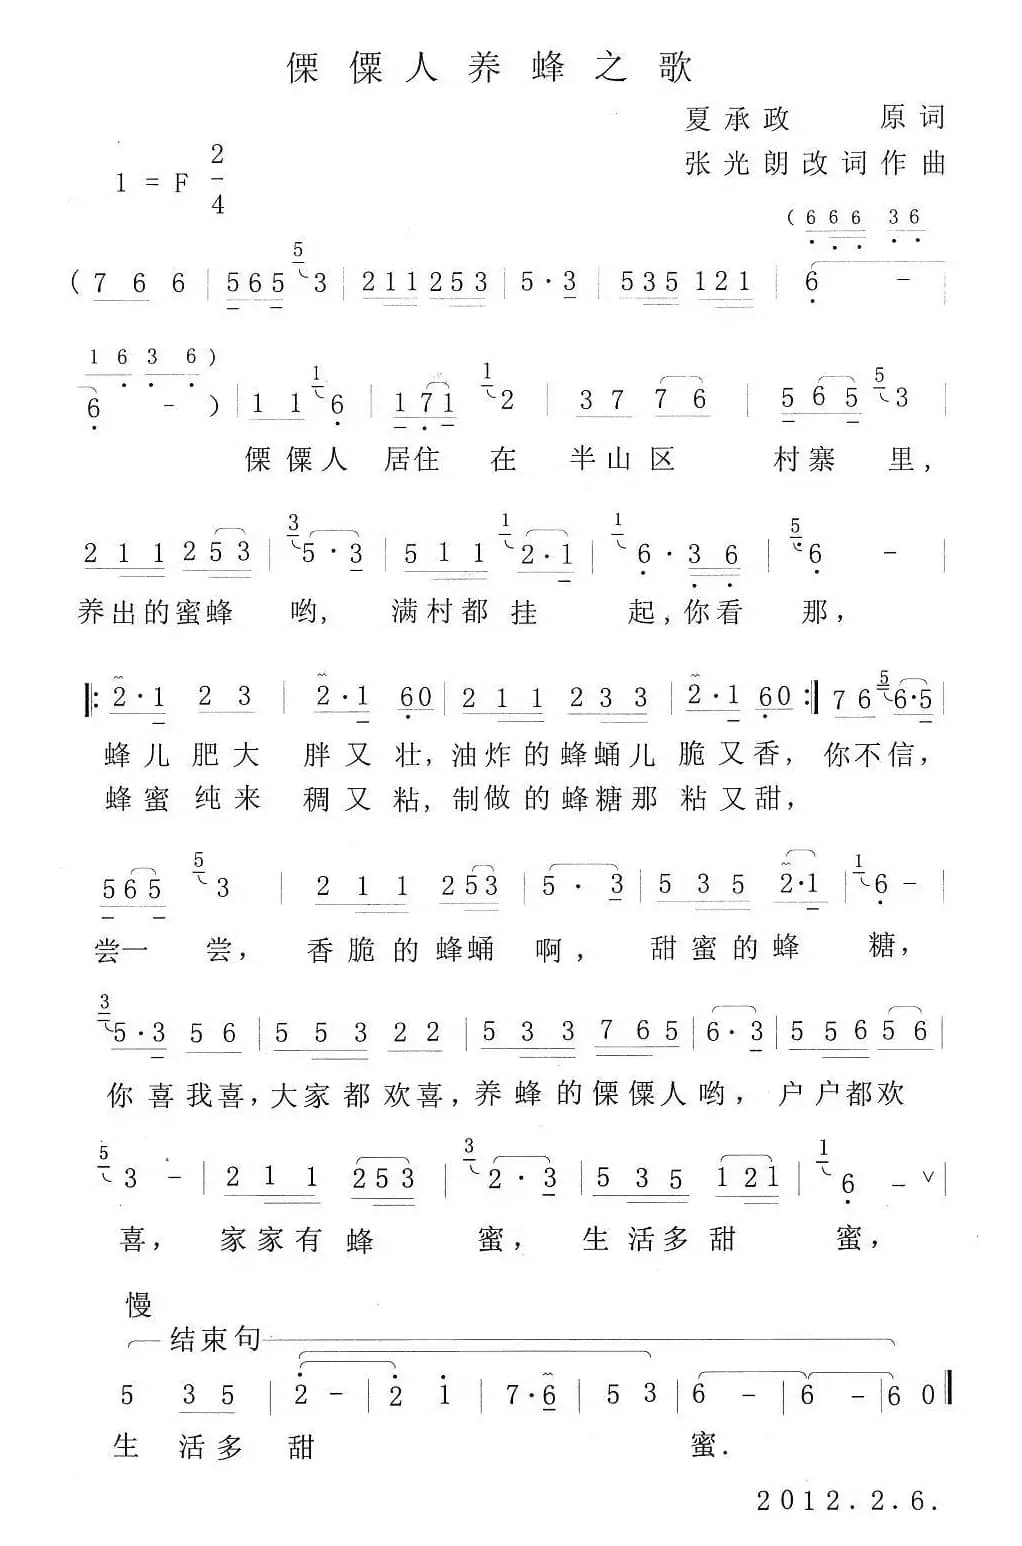 傈僳人养蜂之歌
夏承政 原词
张光朗改词作曲
1 = F 2/4
(6 6 6 3 6
5
(7 6 6 | 5 6 5 3 | 2 1 1 2 5 3 | 5 · 3 | 5 3 5 1 2 1 | 6 -
1 6 3 6)
1 1 5
6 - ) | 1 1 6 | 1 7 1 2 | 3 7 7 6 | 5 6 5 3 |
傈僳人 居住 在 半山区 村寨 里,
3 1 1 5
2 1 1 2 5 3 | 5 · 3 | 5 1 1 2 · 1 | 6 · 3 6 | 6 - |
养出的蜜蜂 哟, 满村都挂 起,你看 那,
5
|: 2 · 1 2 3 | 2 · 1 6 0 | 2 1 1 2 3 3 | 2 · 1 6 0 :| 7 6 6 · 5 |
蜂儿肥大 胖又壮,油炸的蜂蛹儿 脆又香, 你不信,
蜂蜜纯来 稠又粘, 制做的蜂糖那 粘又甜,
5 1
5 6 5 3 | 2 1 1 2 5 3 | 5 · 3 | 5 3 5 2 · 1 | 6 - |
尝一 尝, 香脆的蜂蛹 啊, 甜蜜的蜂 糖,
3
5 · 3 5 6 | 5 5 3 2 2 | 5 3 3 7 6 5 | 6 · 3 | 5 5 6 5 6 |
你喜我喜,大家都欢喜,养蜂的傈僳人哟, 户户都欢
5 3 1
3 - | 2 1 1 2 5 3 | 2 · 3 | 5 3 5 1 2 1 | 6 - ∨ |
喜, 家家有蜂 蜜, 生活多甜 蜜,
慢
结束句
5 3 5 | 2 - | 2 1 | 7 · 6 | 5 3 | 6 - | 6 - | 6 0 ‖
生 活多 甜 蜜.
2012.2.6.